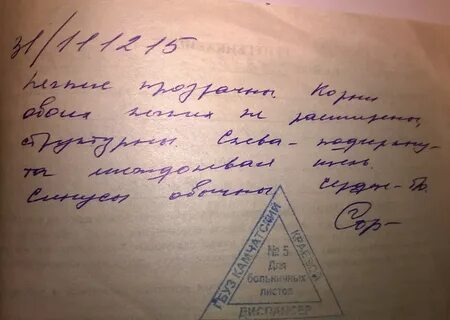 31/III 2 15
Легкие прозрачны. Корни
обоих легких не расширены,
структурны. Слева - подчеркну-
та междолевая щель.
Синусы обычны. Сердце - б/о.
ГБУЗ КАМЧАТСКИЙ
КРАЕВОЙ
№ 5
Для
больничных
листов
ДИСПАНСЕР